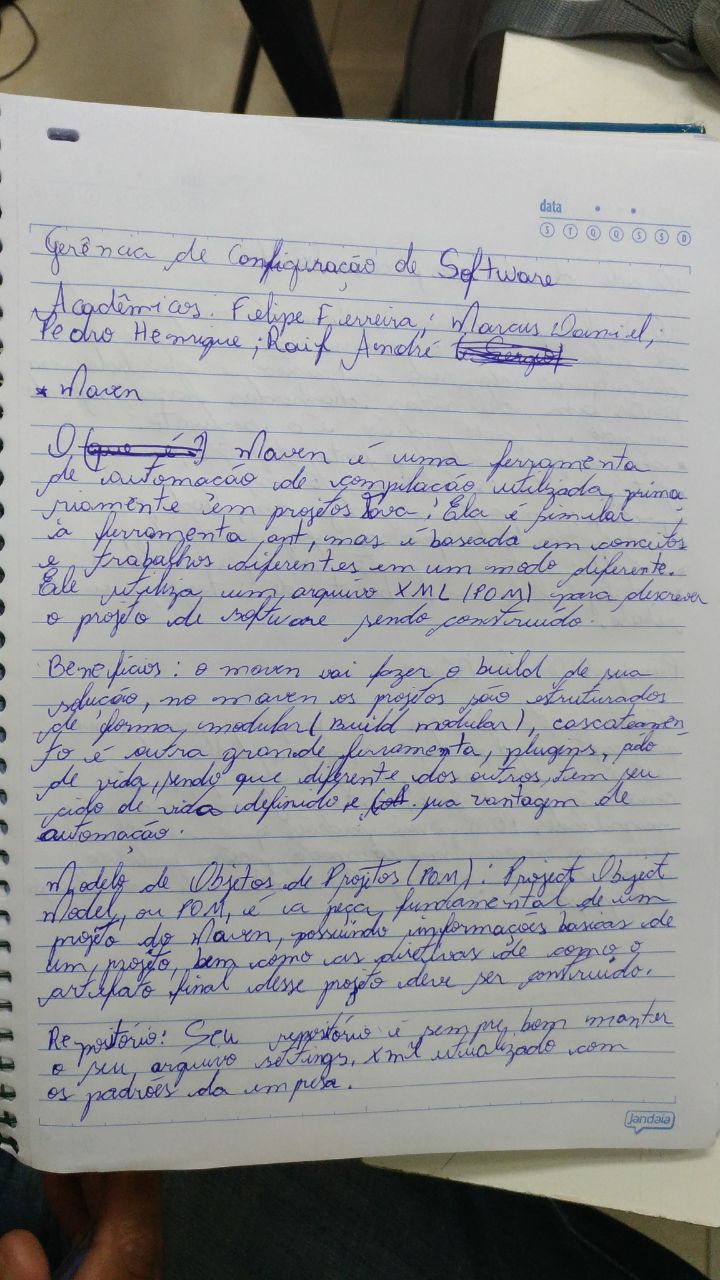 data
S T Q Q S S D
Gerência de Configuração de Software
Acadêmicos: Felipe Ferreira; Marcus Daniel;
Pedro Henrique; Raif André
* Maven
O Maven é uma ferramenta
de automação de compilação utilizada prima
riamente em projetos Java. Ela é similar
à ferramenta ant, mas é baseada em conceitos
e trabalhos diferentes em um modo diferente.
Ele utiliza um arquivo XML (POM) para descrever
o projeto de software sendo construído.
Benefícios: o maven vai fazer o build de sua
solução, no maven os projetos são estruturados
de forma modular (Build modular), cascateamen-
to é outra grande ferramenta, plugens, ciclo
de vida, sendo que diferente dos outros, tem seu
ciclo de vida definido e sua vantagem de
automação.
Modelo de Objetos de Projetos (POM): Project Object
Model, ou POM, é a peça fundamental de um
projeto do Maven, possuindo informações básicas de
um projeto, bem como as diretivas de como o
artefato final desse projeto deve ser construído.
Repositório: Seu repositório é sempre bom manter
o seu arquivo settings.xml atualizado com
os padrões da empresa.
jandaia